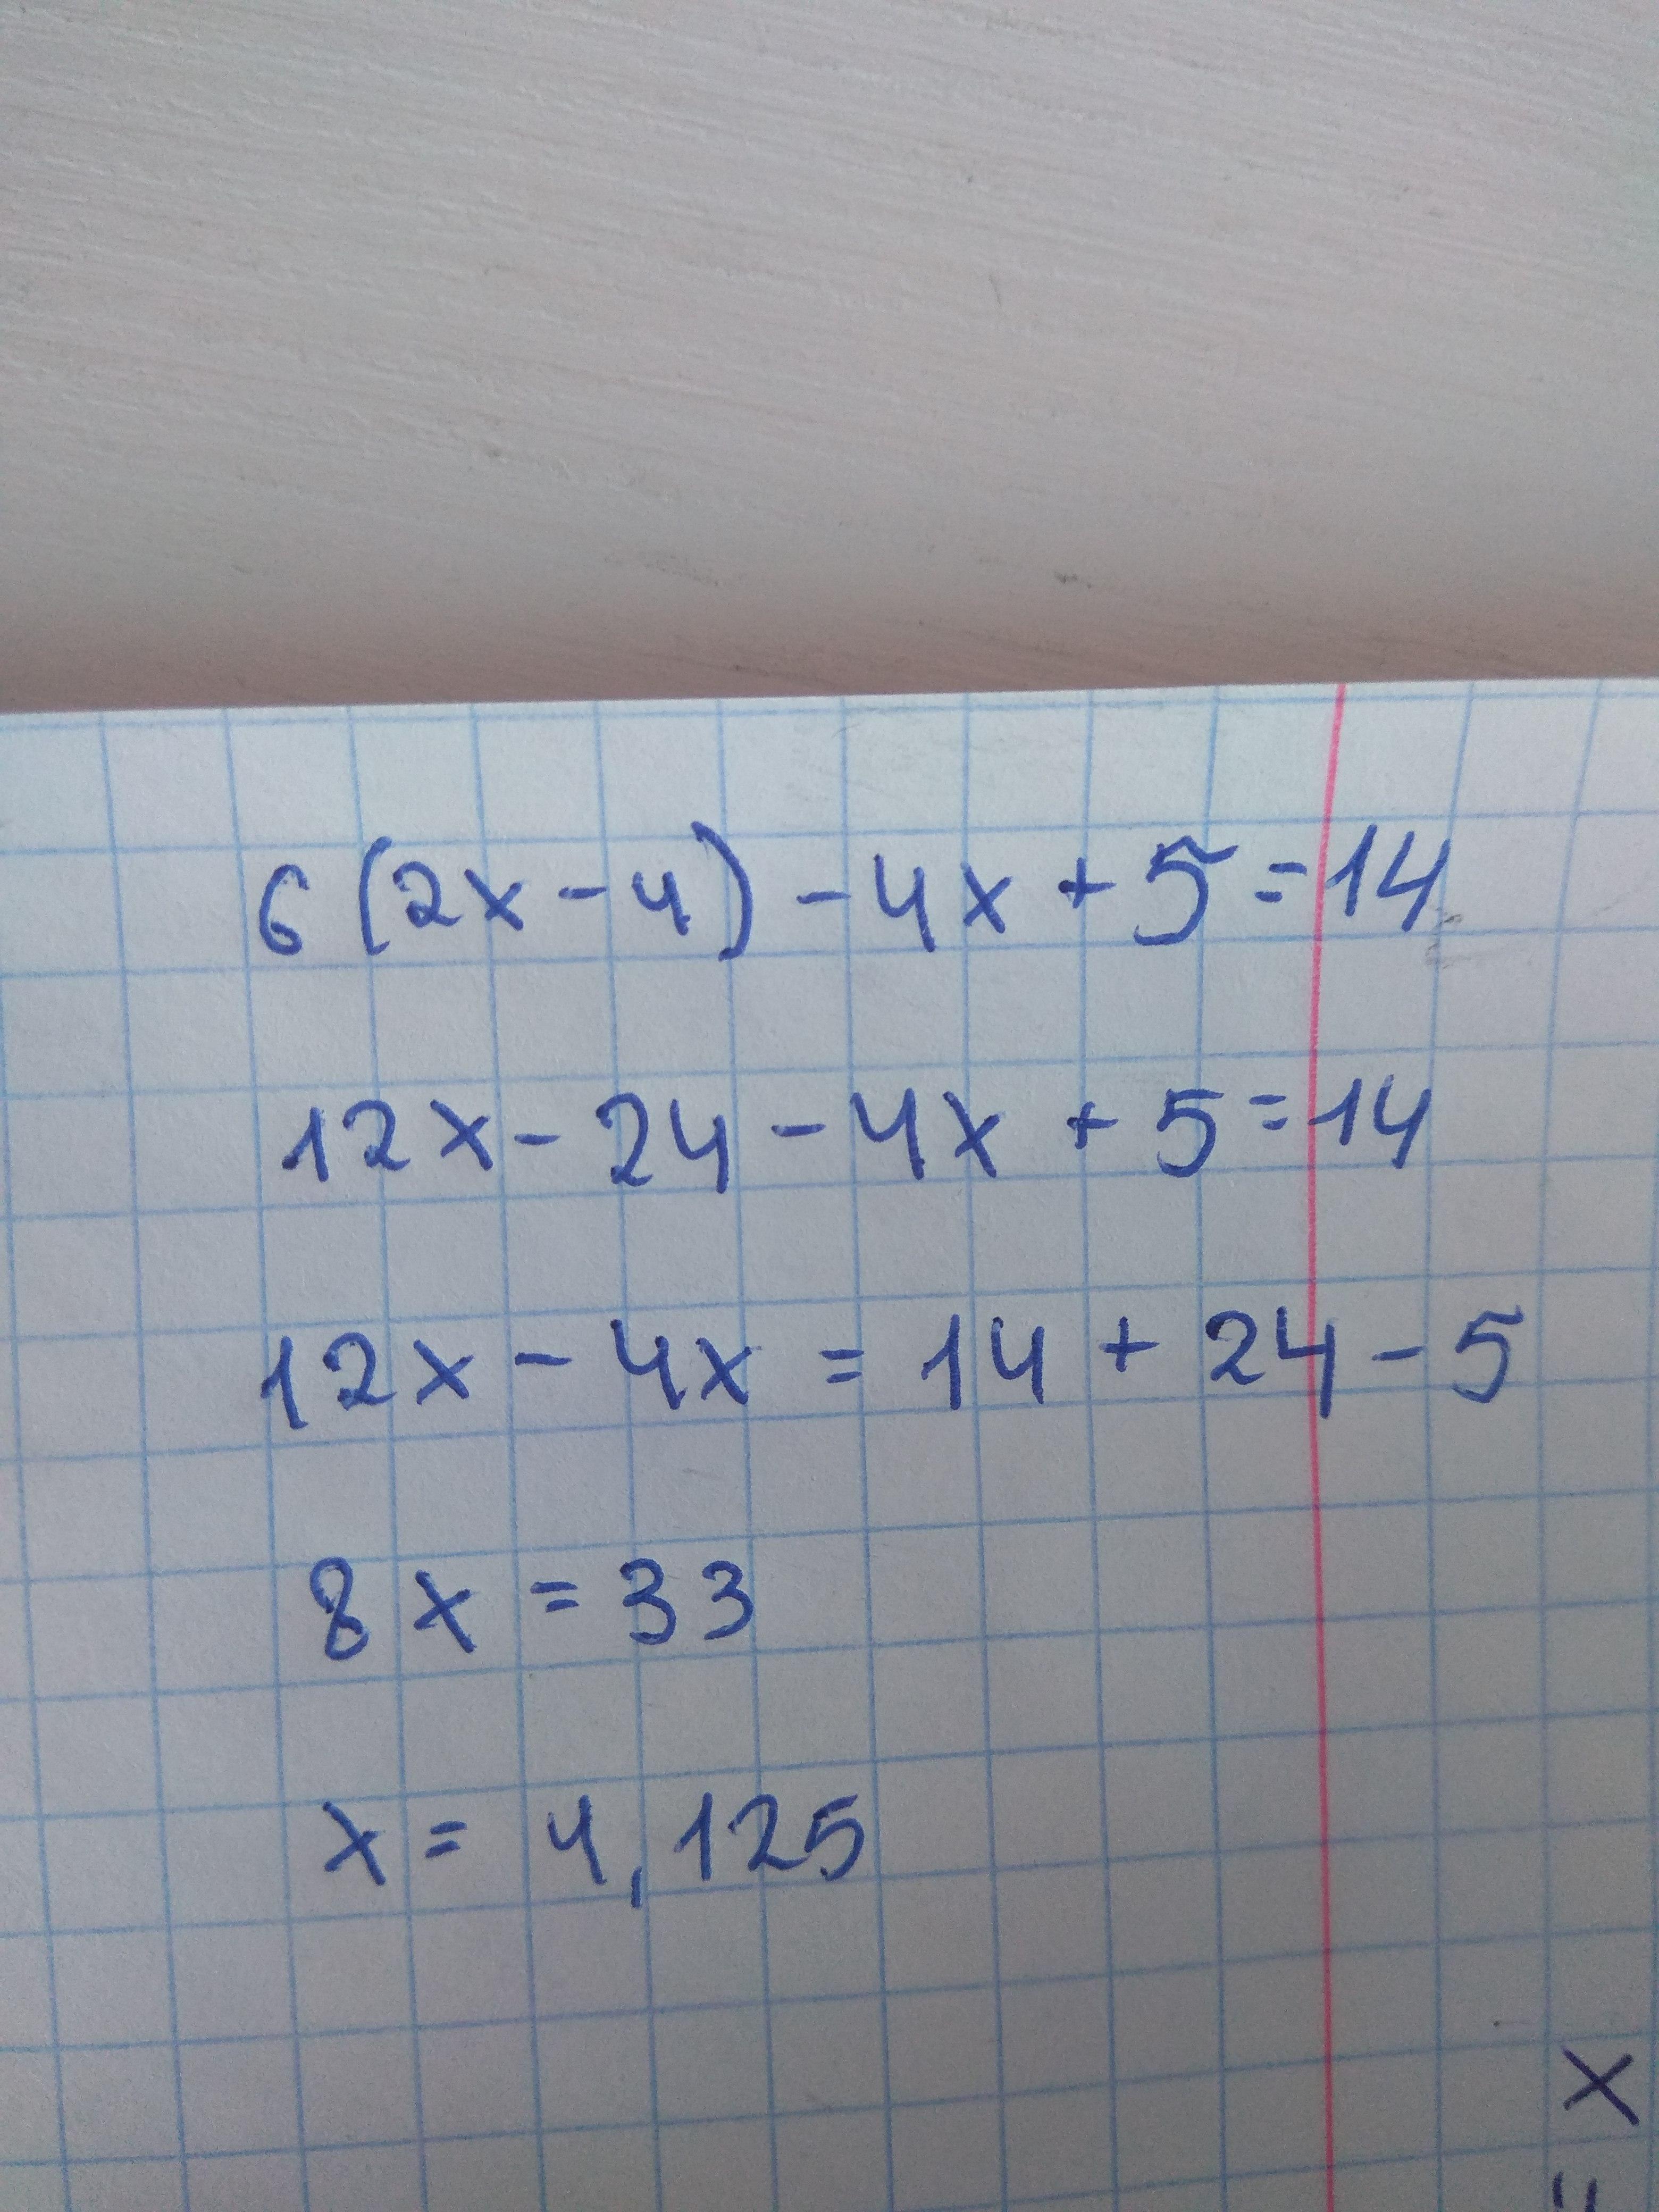 6(2x-4)-4x+5=14
12x-24-4x+5=14
12x-4x=14+24-5
8x=33
x=4,125
= x